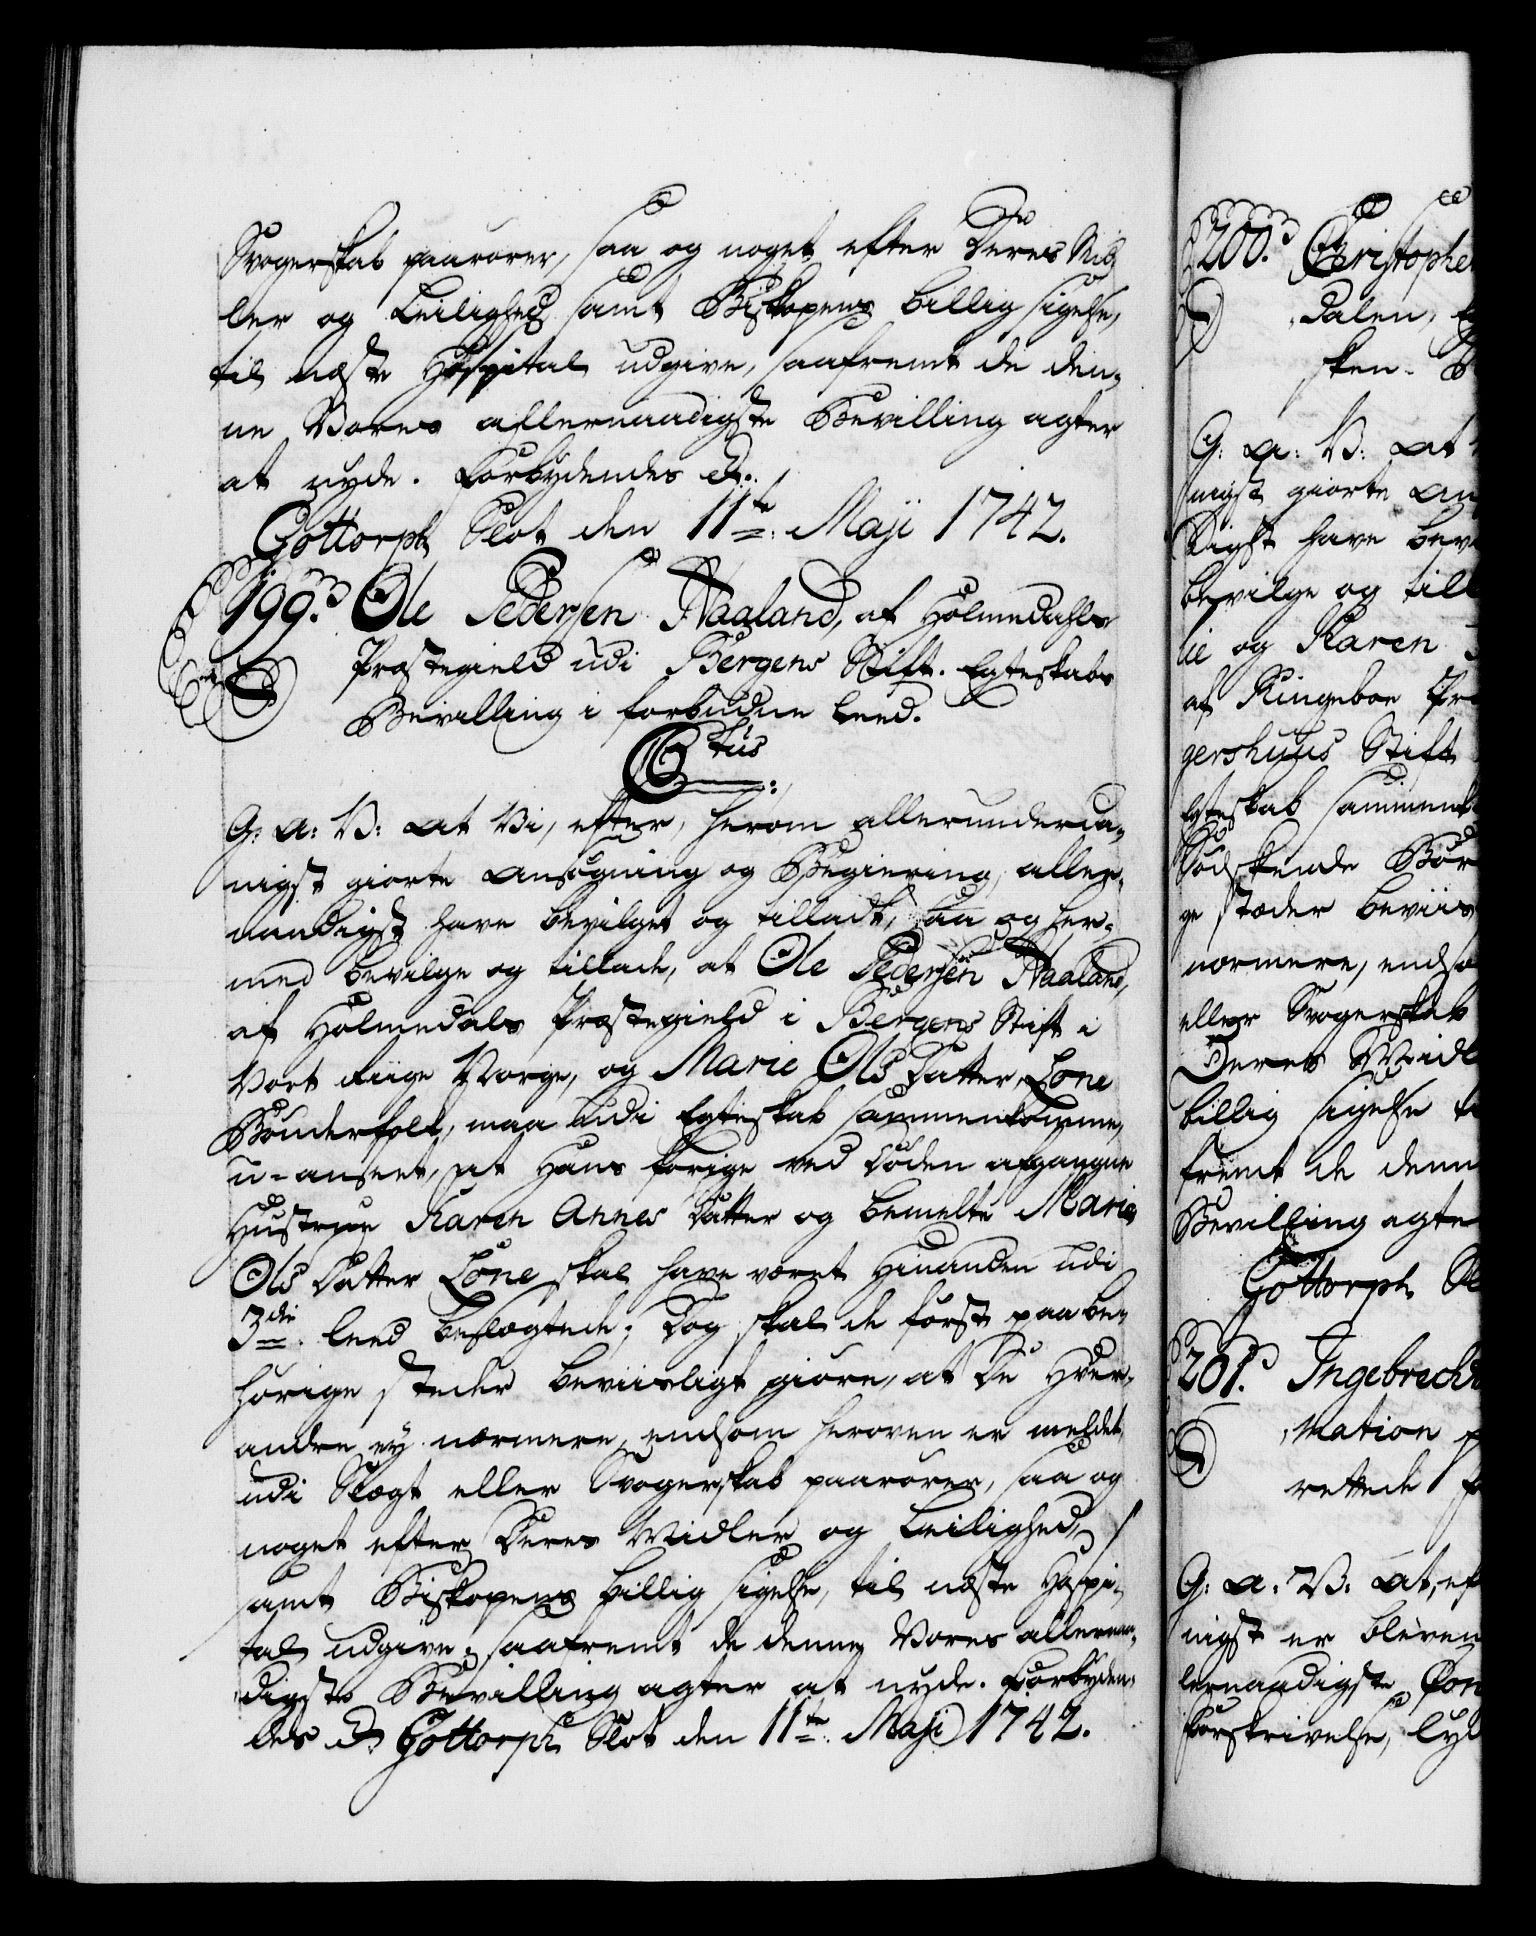 Svogerskab paarører, saa og noget efter Deres Mid,
ler og Leilighed samt Biskopens billig sigelse,
til næste Hospital udgive, saafremt de den,
ne Vores allernaadigste Bevilling agter
at nyde. Forbydendes &.
Gottorph Slot den 11te Maji 1742.
199. Ole Pedersen Naaland, af Holmedahls
Præstegield udi Bergens Stift. Egteskabs
Bevilling i forbudne Leed.
C6tus
G: A: V: At Vi, efter, herom allerunderda,
nigst giorte Ansøgning og Begiering, aller,
naadigst have bevilget og tilladt, saa og her,
med bevilge og tillade, at Ole Pedersen Naaland,
af Holmedals Præstegield i Bergens Stift i
Vort Riige Norge, og Marie Ols Datter Lone
Bønderfolk, maa udi Egteskab sammenkomme,
u-anseet, at Hans forige ved Døden afgangne
Hustrue Karen Annes Datter og bemelte Marie
Ols Datter Lone skal have været Hinanden udi
3die Leed beslægtede; Dog skal de først paa be,
hørige steder beviisligt giøre, at De Hver,
andre ey nærmere, endsom heroven er meldet,
udi Slægt eller Svogerskab paarører, saa og
noget efter Deres Midler og Leilighed,
samt Biskopens billig sigelse, til næste Hospi,
tal udgive; saafremt de denne Vores allernaa,
digste Bevilling agter at nyde. Forbyden,
des & Gottorph Slot den 11te Maji 1742.
200. Christophe
Dalen, E
sken. B
G: A: V: At
nigst giorte An
digst have bev
bevilge og till
lie og Karen
af Ringeboe Præ
gershuus Stift
Egteskab sammenk
Sødskende Bør
ge stæder beviis
nærmere, endso
eller Svogerskab
Deres Midl
billig sigelse ti
fremt de denn
Bevilling agte
Gottorph Sl
201. Ingebrecht
mation p
rettede fo
G: A: V: At, ef
nigst er bleven
lernaadigste Con
forskrivelse, lyd